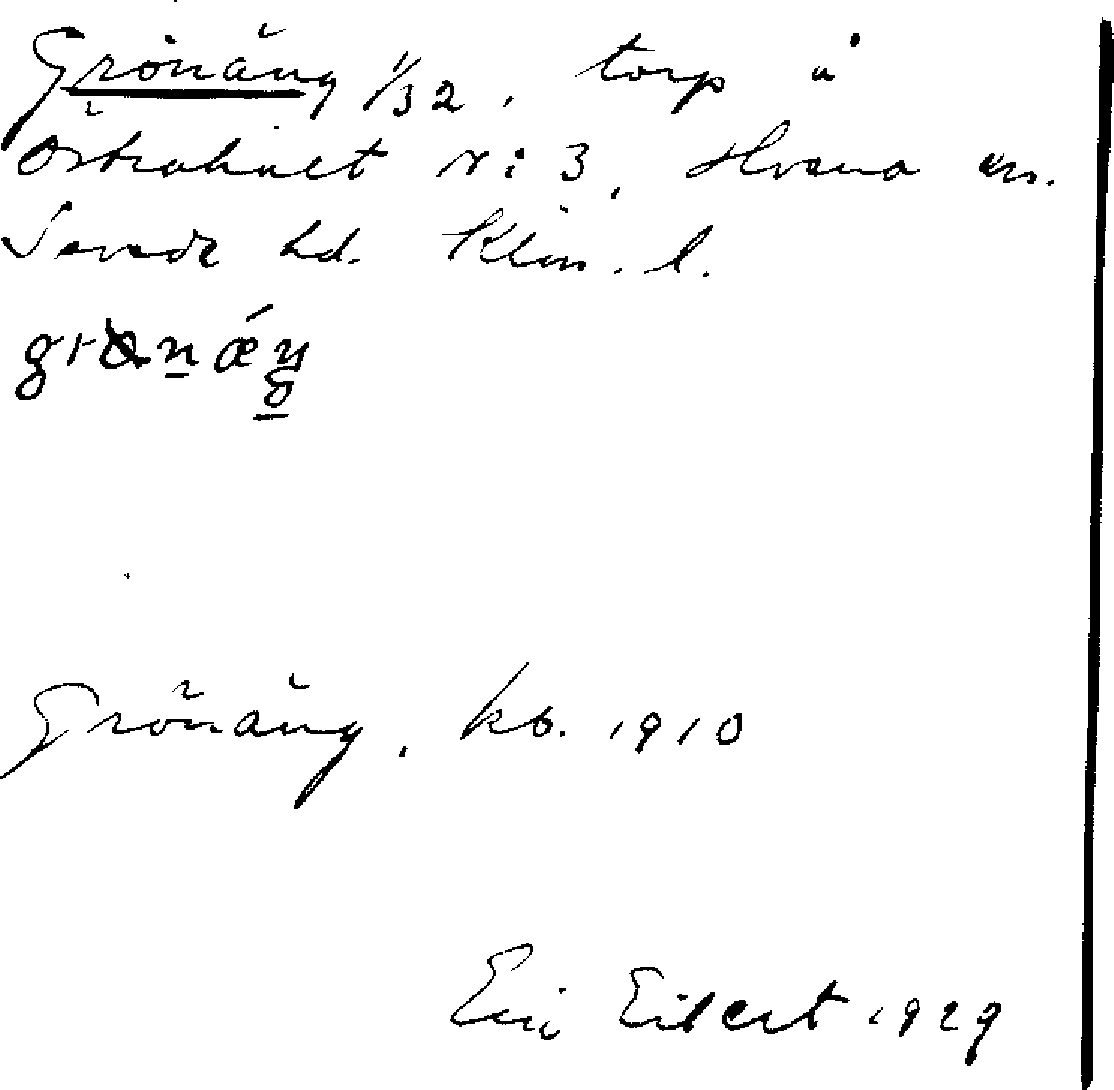 Grönäng 1/32, torp å
Östrahult Nr: 3, Hvena sn.
Sevede hd. Klm. l.
Grönäng, kb. 1910
Eric Eilert 1929